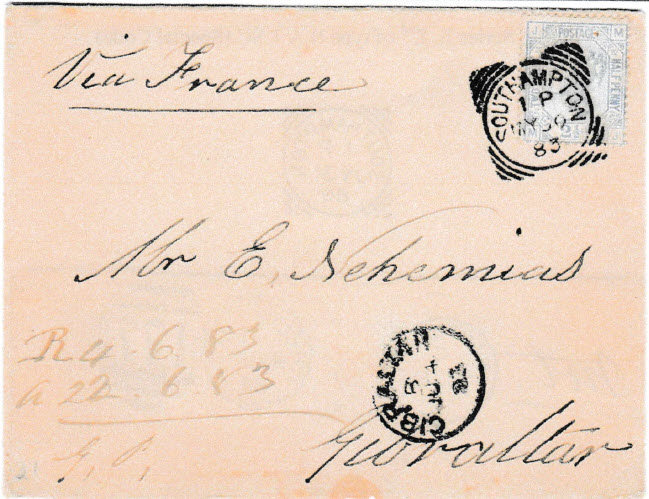 Via France
POSTAGE
HALFPENNY
SOUTHAMPTON
1 P
MY 30
83
Mr E. Nehemias
R 4 6 83
a 22 6 83
G. P.
GIBRALTAR
B
JU 4
83
Gibraltar